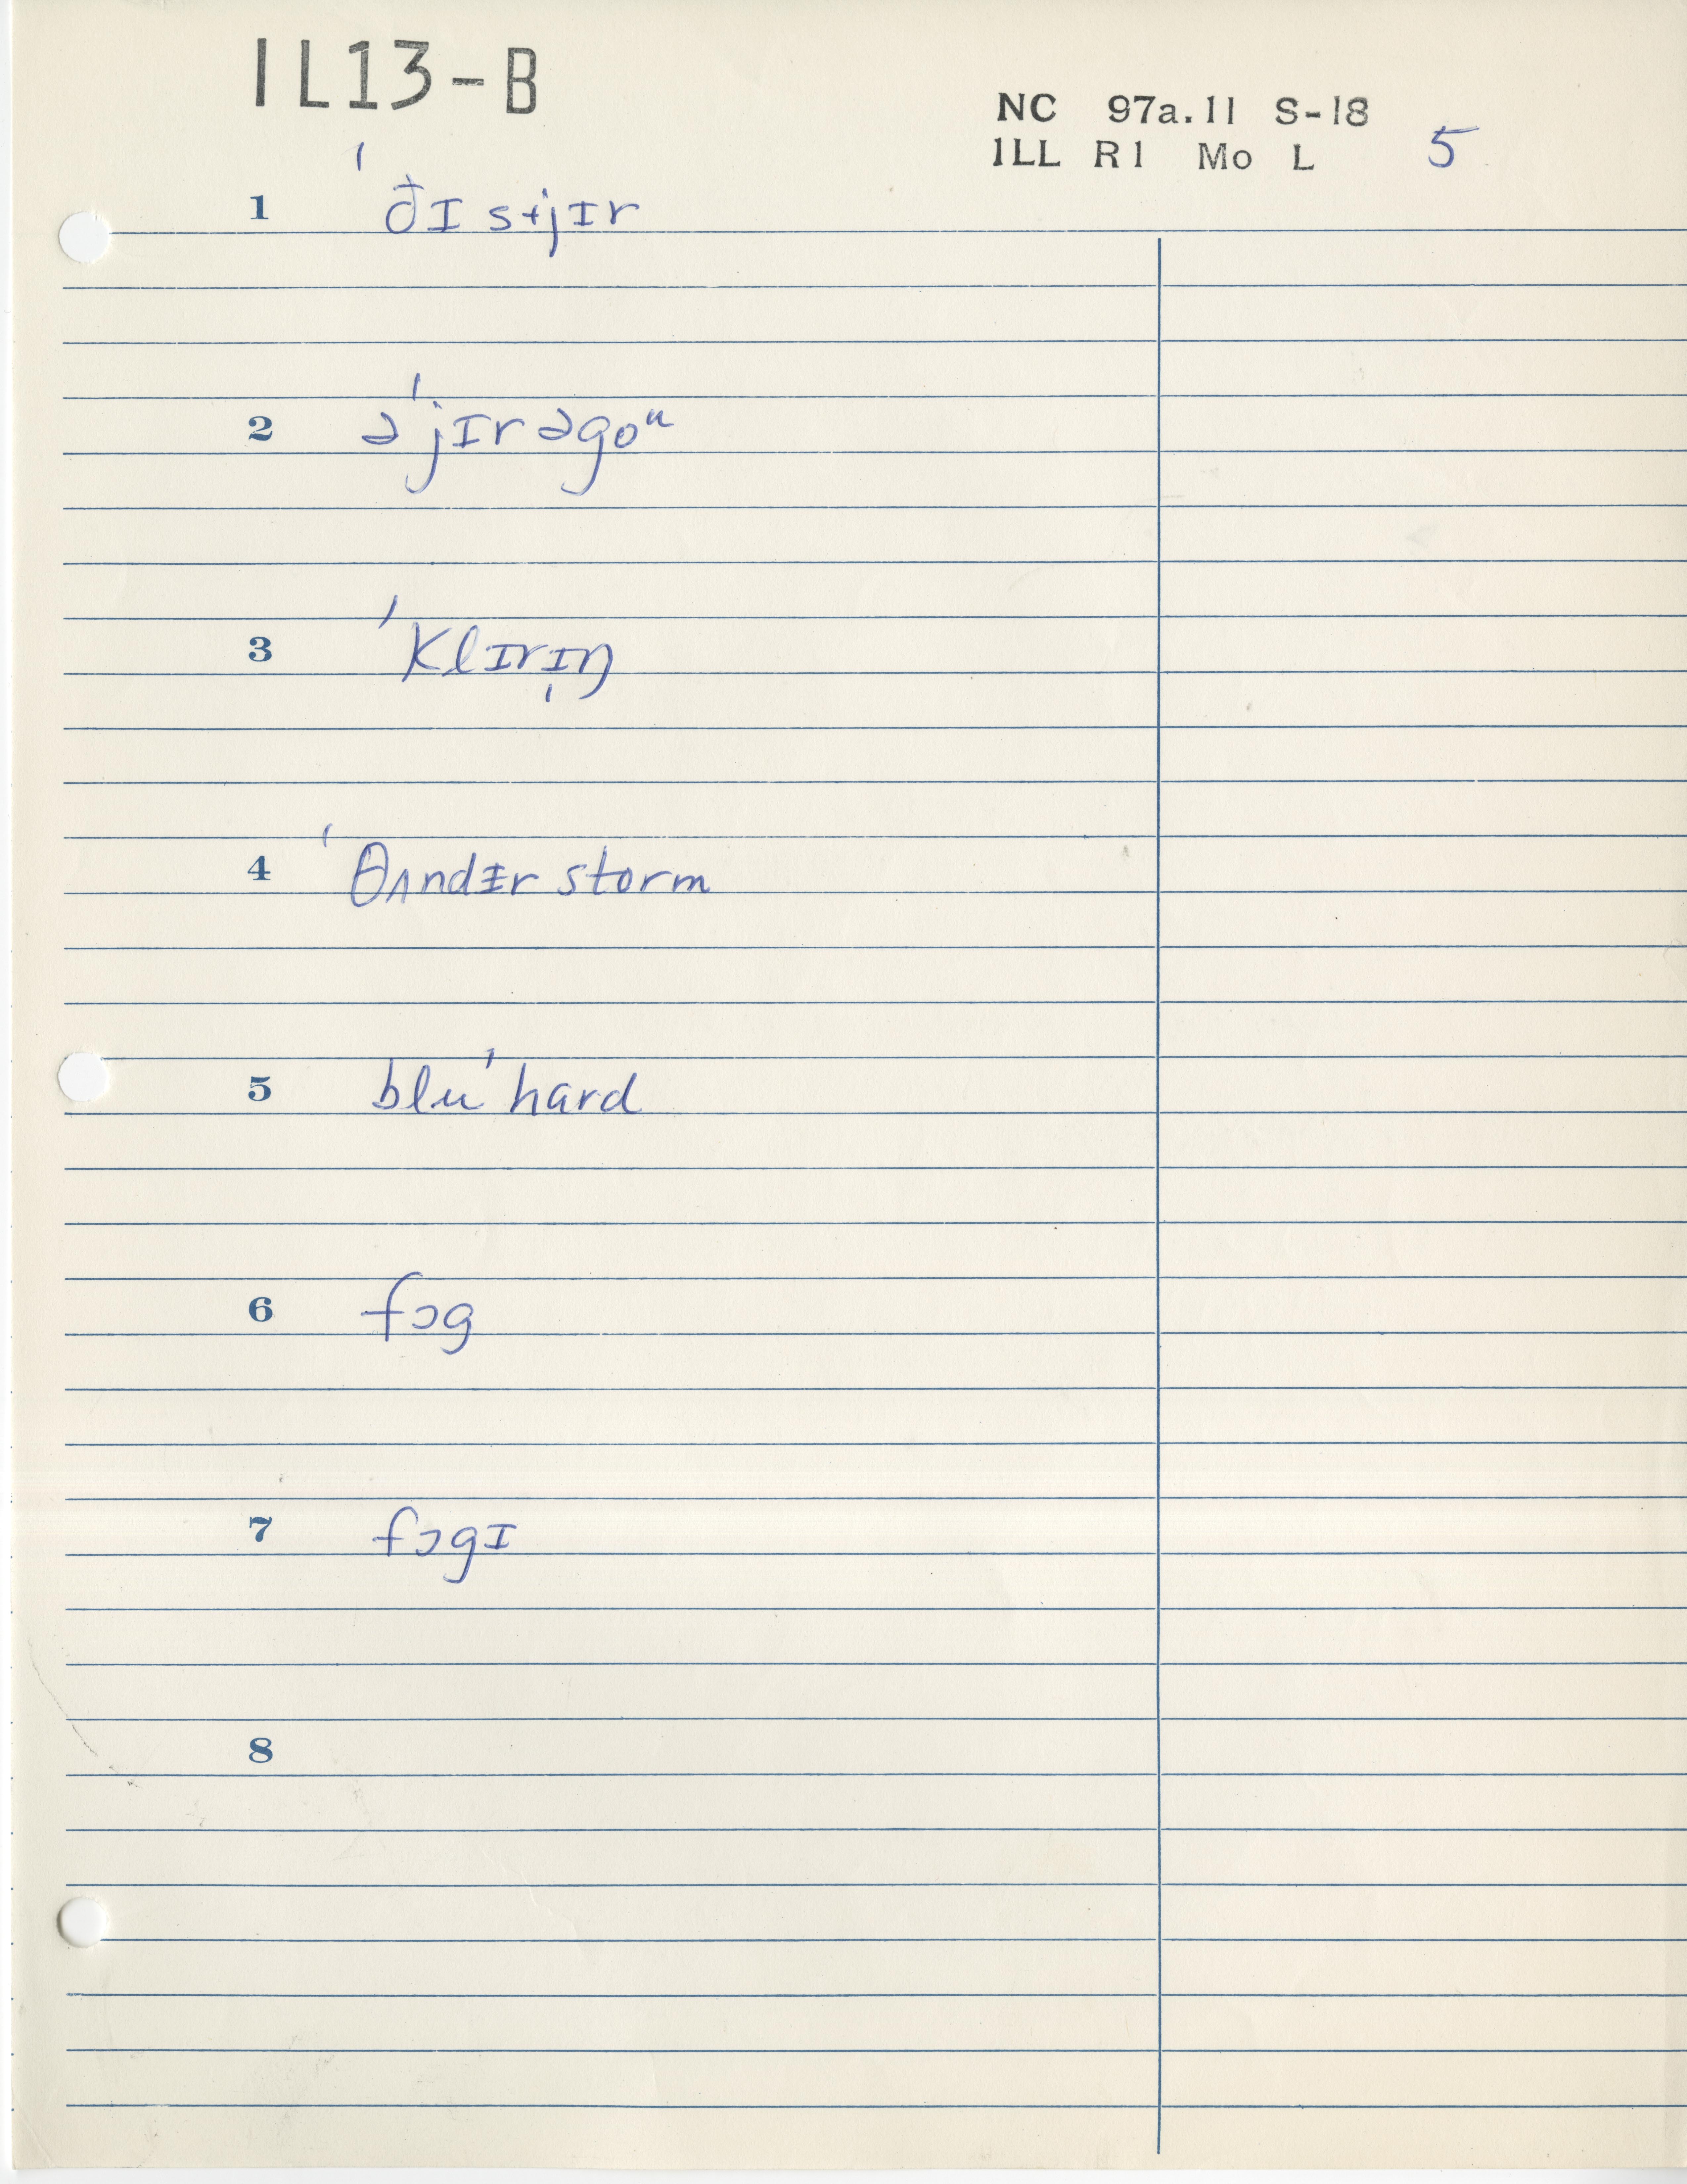 IL13-B
NC 97a.11 S-18
ILL R1 Mo L 5
1 ˈðɪ sɨjɪr
2 əˈjɪr əgoᵘ
3 ˈKlɪrɪ̩ŋ
4 ˈθʌndᵻr storm
5 bluˈhard
6 fɔg
7 fɔgɪ
8